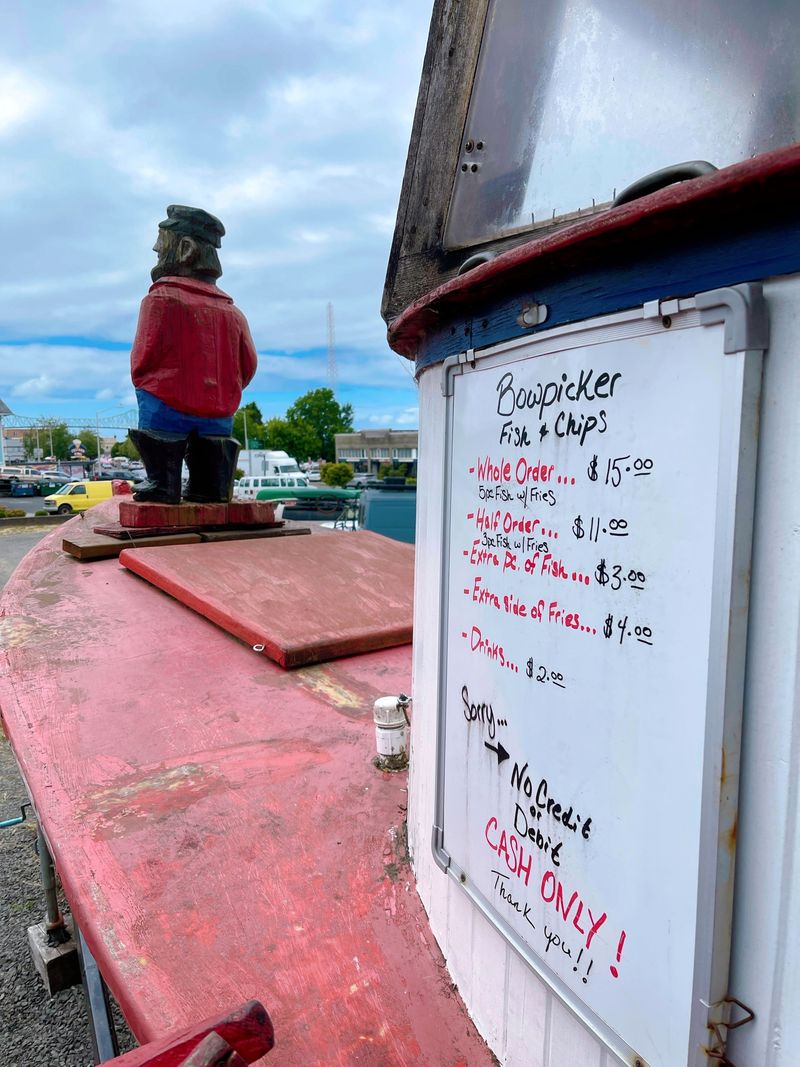 Bowpicker
Fish & Chips
- Whole Order... $15.00
5pc Fish w/ Fries
- Half Order... $11.00
3pc Fish w/ Fries
- Extra Pc. of Fish... $3.00
- Extra side of Fries... $4.00
- Drinks... $2.00
Sorry...
→ No Credit
or
Debit
CASH ONLY!
Thank you!!